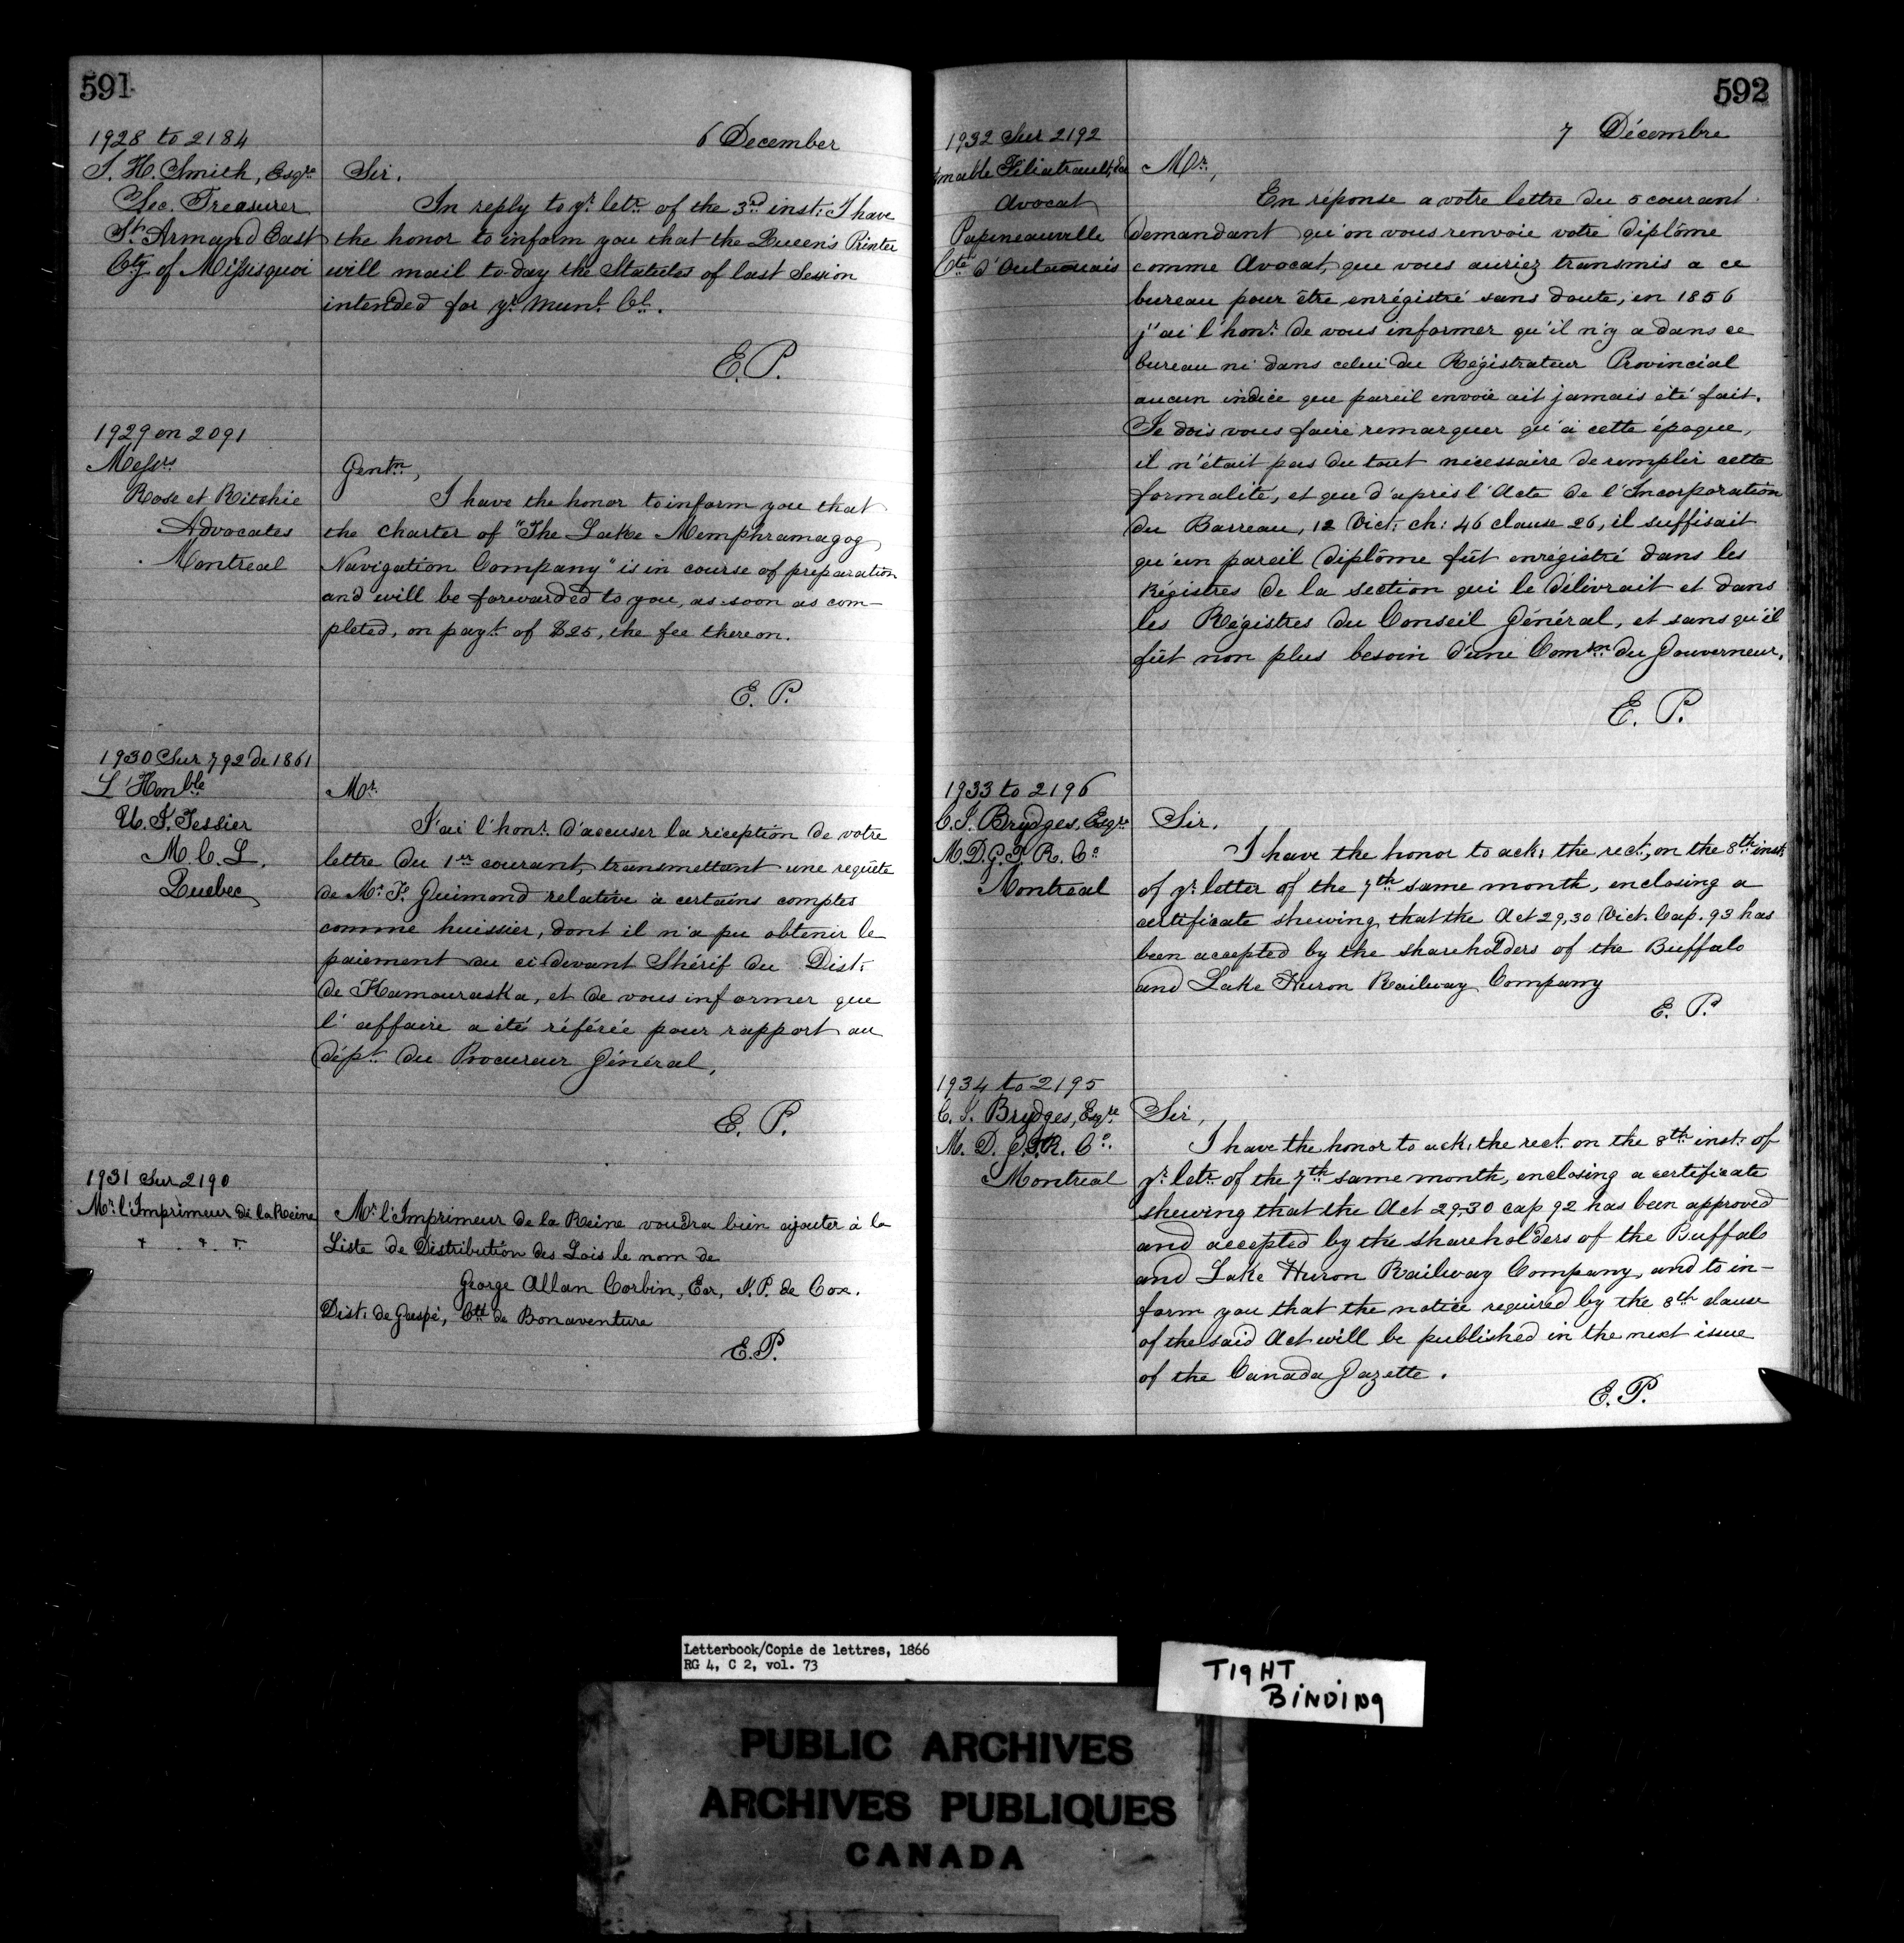 591
6 December
1928 to 2184
J. H. Smith, Esqre
Sec. Treasurer
St. Armand East
Cty of Missisquoi
Sir,
In reply to yr. letr. of the 3rd inst: I have
the honor to inform you that the Queen's Printer
will mail to day the Statutes of last Session
intended for yr. Muni. Cl.
E. P.
1929 on 2091
Messrs
Rose et Ritchie
Advocates
Montreal
Gentn,
I have the honor to inform you that
the charter of "The Lake Memphramagog
Navigation Company" is in course of preparation
and will be forwarded to you, as soon as com-
pleted, on payt. of $25, the fee thereon.
E. P.
1930 Sur 792 de 1861
L'Honble
U. J. Tessier
M. C. L.
Quebec
Mr.
J'ai l'honr. d'accuser la réception de votre
lettre du 1er courant, transmettant une requête
de Mr. F. Guimond relative à certains comptes
comme huissier, dont il n'a pu obtenir le
paiement du ci devant Shérif du Dist:
de Kamouraska, et de vous informer que
l'affaire a été référée pour rapport au
dépt. du Procureur Général,
E. P.
1931 Sur 2190
Mr. l'Imprimeur de la Reine
+ + +
Mr. l'Imprimeur de la Reine voudra bien ajouter à la
Liste de Distribution des Lois le nom de
George Allan Corbin, Ecr, J. P. de Cox.
Dist: de Gaspé, Cté de Bonaventure
E. P.
592
7 Décembre
1932 Sur 2192
Amable Féliatrault, Ecr
Avocat
Papineauville
Cté d'Outaouais
Mr.,
En réponse a votre lettre du 5 courant
demandant qu'on vous renvoie votre diplôme
comme Avocat, que vous auriez transmis a ce
bureau pour être enrégistré sans doute, en 1856
j'ai l'honr. de vous informer qu'il n'y a dans ce
bureau ni dans celui du Régistrateur Provincial
aucun indice que pareil envoie ait jamais été fait.
Je dois vous faire remarquer qu'à cette époque,
il n'était pas du tout nécessaire de remplir cette
formalité, et que d'après l'Acte de l'Incorporation
du Barreau, 12 Vict: ch: 46 clause 26, il suffisait
qu'un pareil diplôme fût enrégistré dans les
Régistres de la section qui le délivrait et dans
les Régistres du Conseil Général, et sans qu'il
fût non plus besoin d'une Comsn. du Gouverneur,
E. P.
1933 to 2196
C. J. Brydges, Esqre
M. D. G. T. R. Co
Montreal
Sir,
I have the honor to ack: the rect., on the 8th inst:
of yr. letter of the 7th same month, enclosing a
certificate shewing that the Act 29,30 Vict. Cap. 93 has
been accepted by the shareholders of the Buffalo
and Lake Huron Railway Company
E. P.
1934 to 2195
C. J. Brydges, Esqre
M. D. G. T. R. Co.
Montreal
Sir,
I have the honor to ack: the rect. on the 8th inst: of
yr. letr. of the 7th same month, enclosing a certificate
shewing that the Act 29,30 cap 92 has been approved
and accepted by the shareholders of the Buffalo
and Lake Huron Railway Company, and to in-
form you that the notice required by the 8th clause
of the said Act will be published in the next issue
of the Canada Gazette.
E. P.
Letterbook/Copie de lettres, 1866
RG 4, C 2, vol. 73
TIGHT
BINDING
PUBLIC ARCHIVES
ARCHIVES PUBLIQUES
CANADA